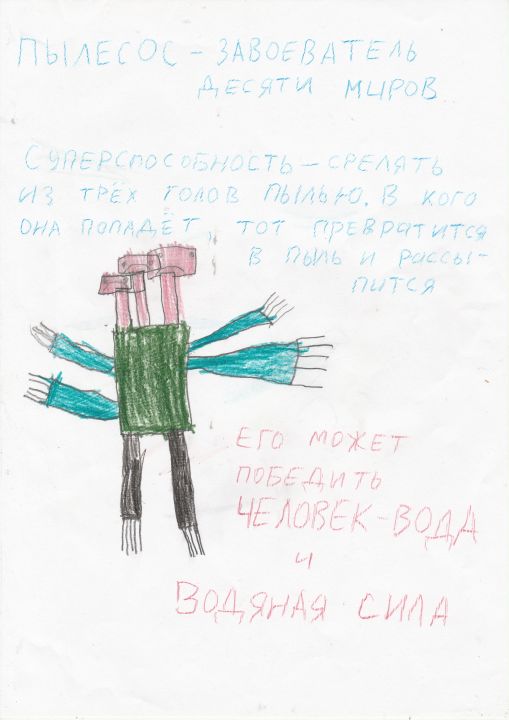 ПЫЛЕСОС - ЗАВОЕВАТЕЛЬ
ДЕСЯТИ МИРОВ
СУПЕРСПОСОБНОСТЬ - СРЕЛЯТЬ
ИЗ ТРЁХ ГОЛОВ ПЫЛЬЮ. В КОГО
ОНА ПОПАДЁТ, ТОТ ПРЕВРАТИТСЯ
В ПЫЛЬ И РАССЫ-
ПИТСЯ
ЕГО МОЖЕТ
ПОБЕДИТЬ
ЧЕЛОВЕК-ВОДА
И
ВОДЯНАЯ СИЛА